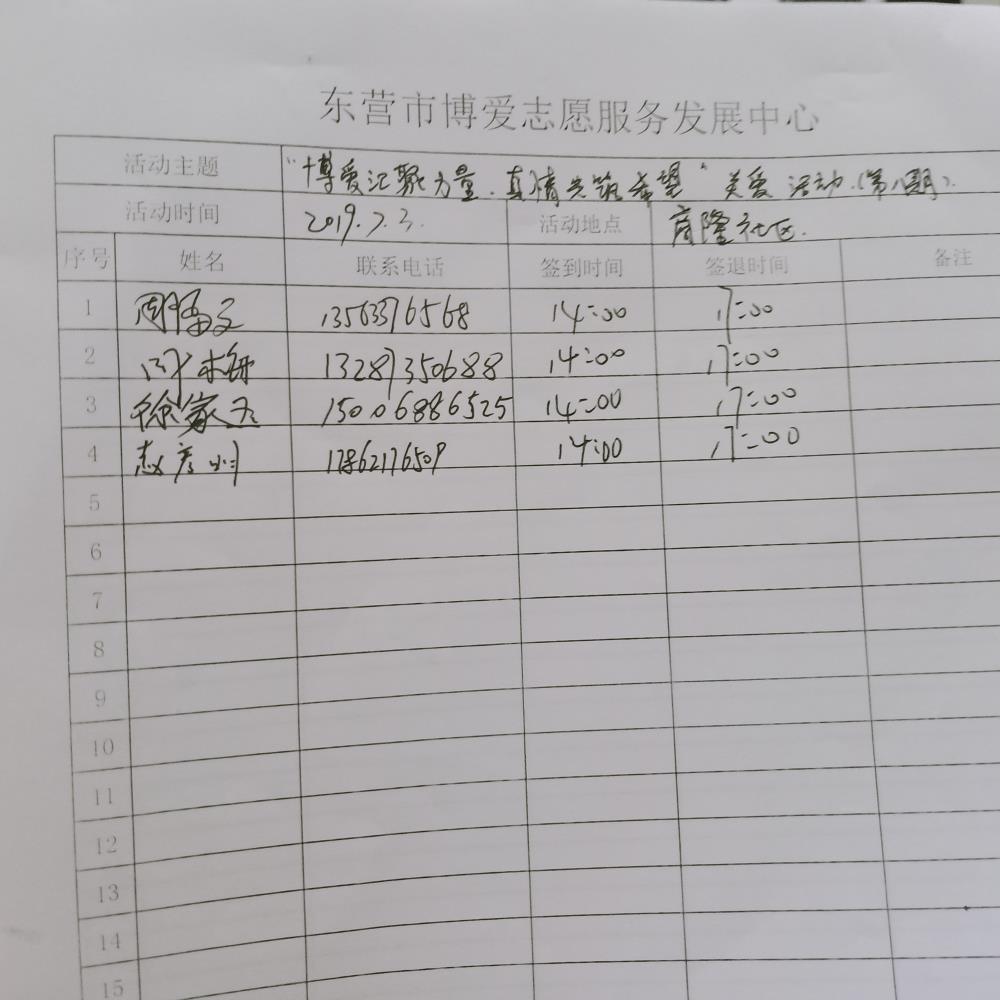 东营市博爱志愿服务发展中心
活动主题 "博爱汇聚力量.真情共筑希望"关爱活动.(第八期).
活动时间 2019.7.3. 活动地点 商隆社区.
序号 姓名 联系电话 签到时间 签退时间 备注
1 13563376568 14:00 17:00
2 13287350688 14:00 17:00
3 徐家 15006886525 14:00 17:00
4 赵彦 17862176509 14:00 17:00
5
6
7
8
9
10
11
12
13
14
15